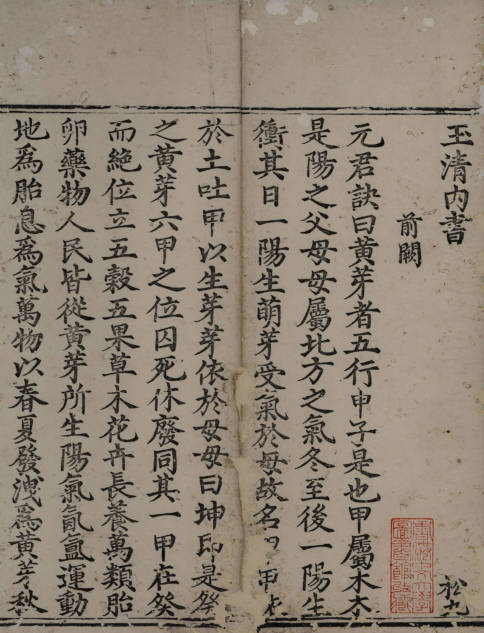 玉清内書
前闕
元君訣曰黄芽者五行甲子是也甲屬木木
是陽之父母母屬北方之氣冬至後一陽生
衝其日一陽生萌芽受氣於母故名曰甲
於土吐甲以生芽芽依於母母曰坤即是癸
之黄芽六甲之位囚死休廢同其一甲在癸
而絶位立五穀五果草木花卉長養萬類胎
卵藥物人民皆從黄芽所生陽氣氤氲運動
地爲胎息爲氣萬物以春夏發洩爲黄芽秋
松九